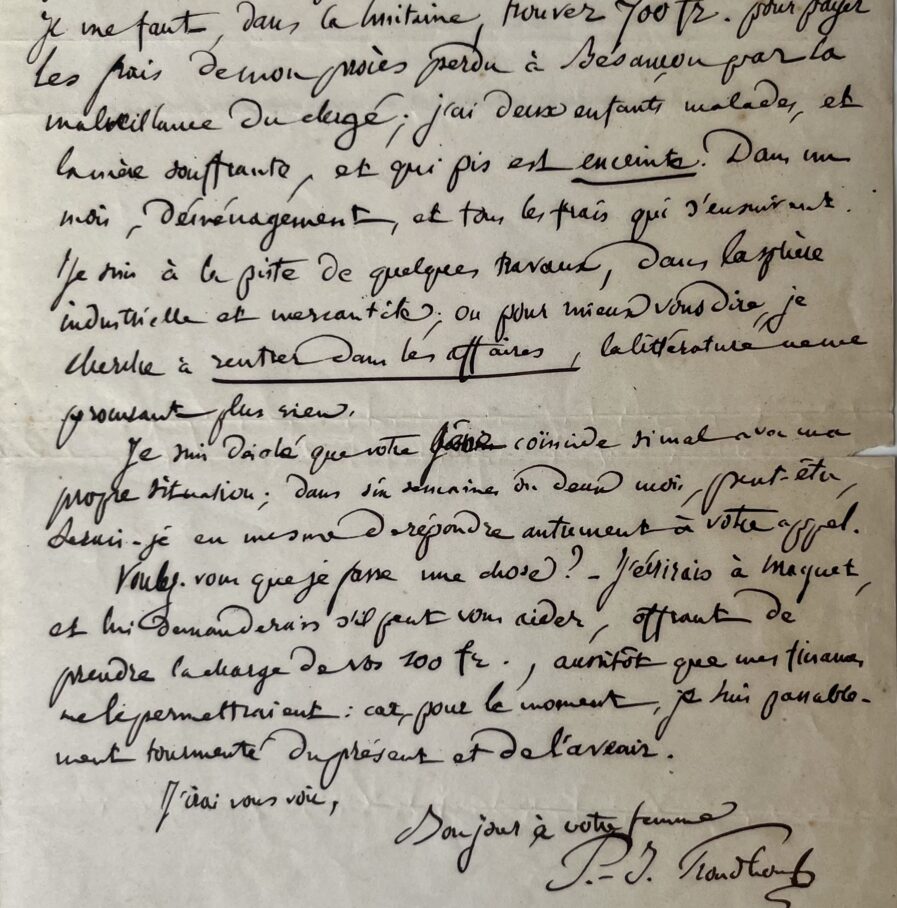 Je me faut, dans la huitaine, trouver 700 fr. pour payer
les frais de mon procès perdu à Besançon par la
malveillance du clergé; j'ai deux enfants malades, et
la mère souffrante, et qui pis est enceinte. Dans un
mois, déménagement, et tous les frais qui s'ensuivent.
Je suis à la piste de quelques travaux, dans la sphère
industrielle et mercantile; ou pour mieux vous dire, je
cherche à rentrer dans les affaires, la littérature ne me
produisant plus rien.
Je suis désolé que votre coïncide si mal avec ma
propre situation; dans six semaines ou deux mois, peut-être,
serai-je en mesure de répondre autrement à votre appel.
Voulez-vous que je fasse une chose? - J'écrirais à Maquet,
et lui demanderais s'il peut vous aider, offrant de
prendre la charge de vos 100 fr., aussitôt que mes finances
me le permettraient: car, pour le moment, je suis passable-
ment tourmenté du présent et de l'avenir.
J'irai vous voir,
Bonjour à votre femme
P.-J. Proudhon